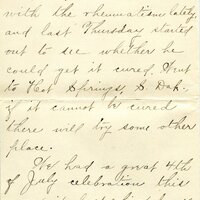 with the rheumatism lately
and last Thursday started
out to see whether he
could get it cured. Went
to Hot Springs, S. Dak.
if it cannot be cured
there will try some other
place.
We had a great 4th
of July celebration this